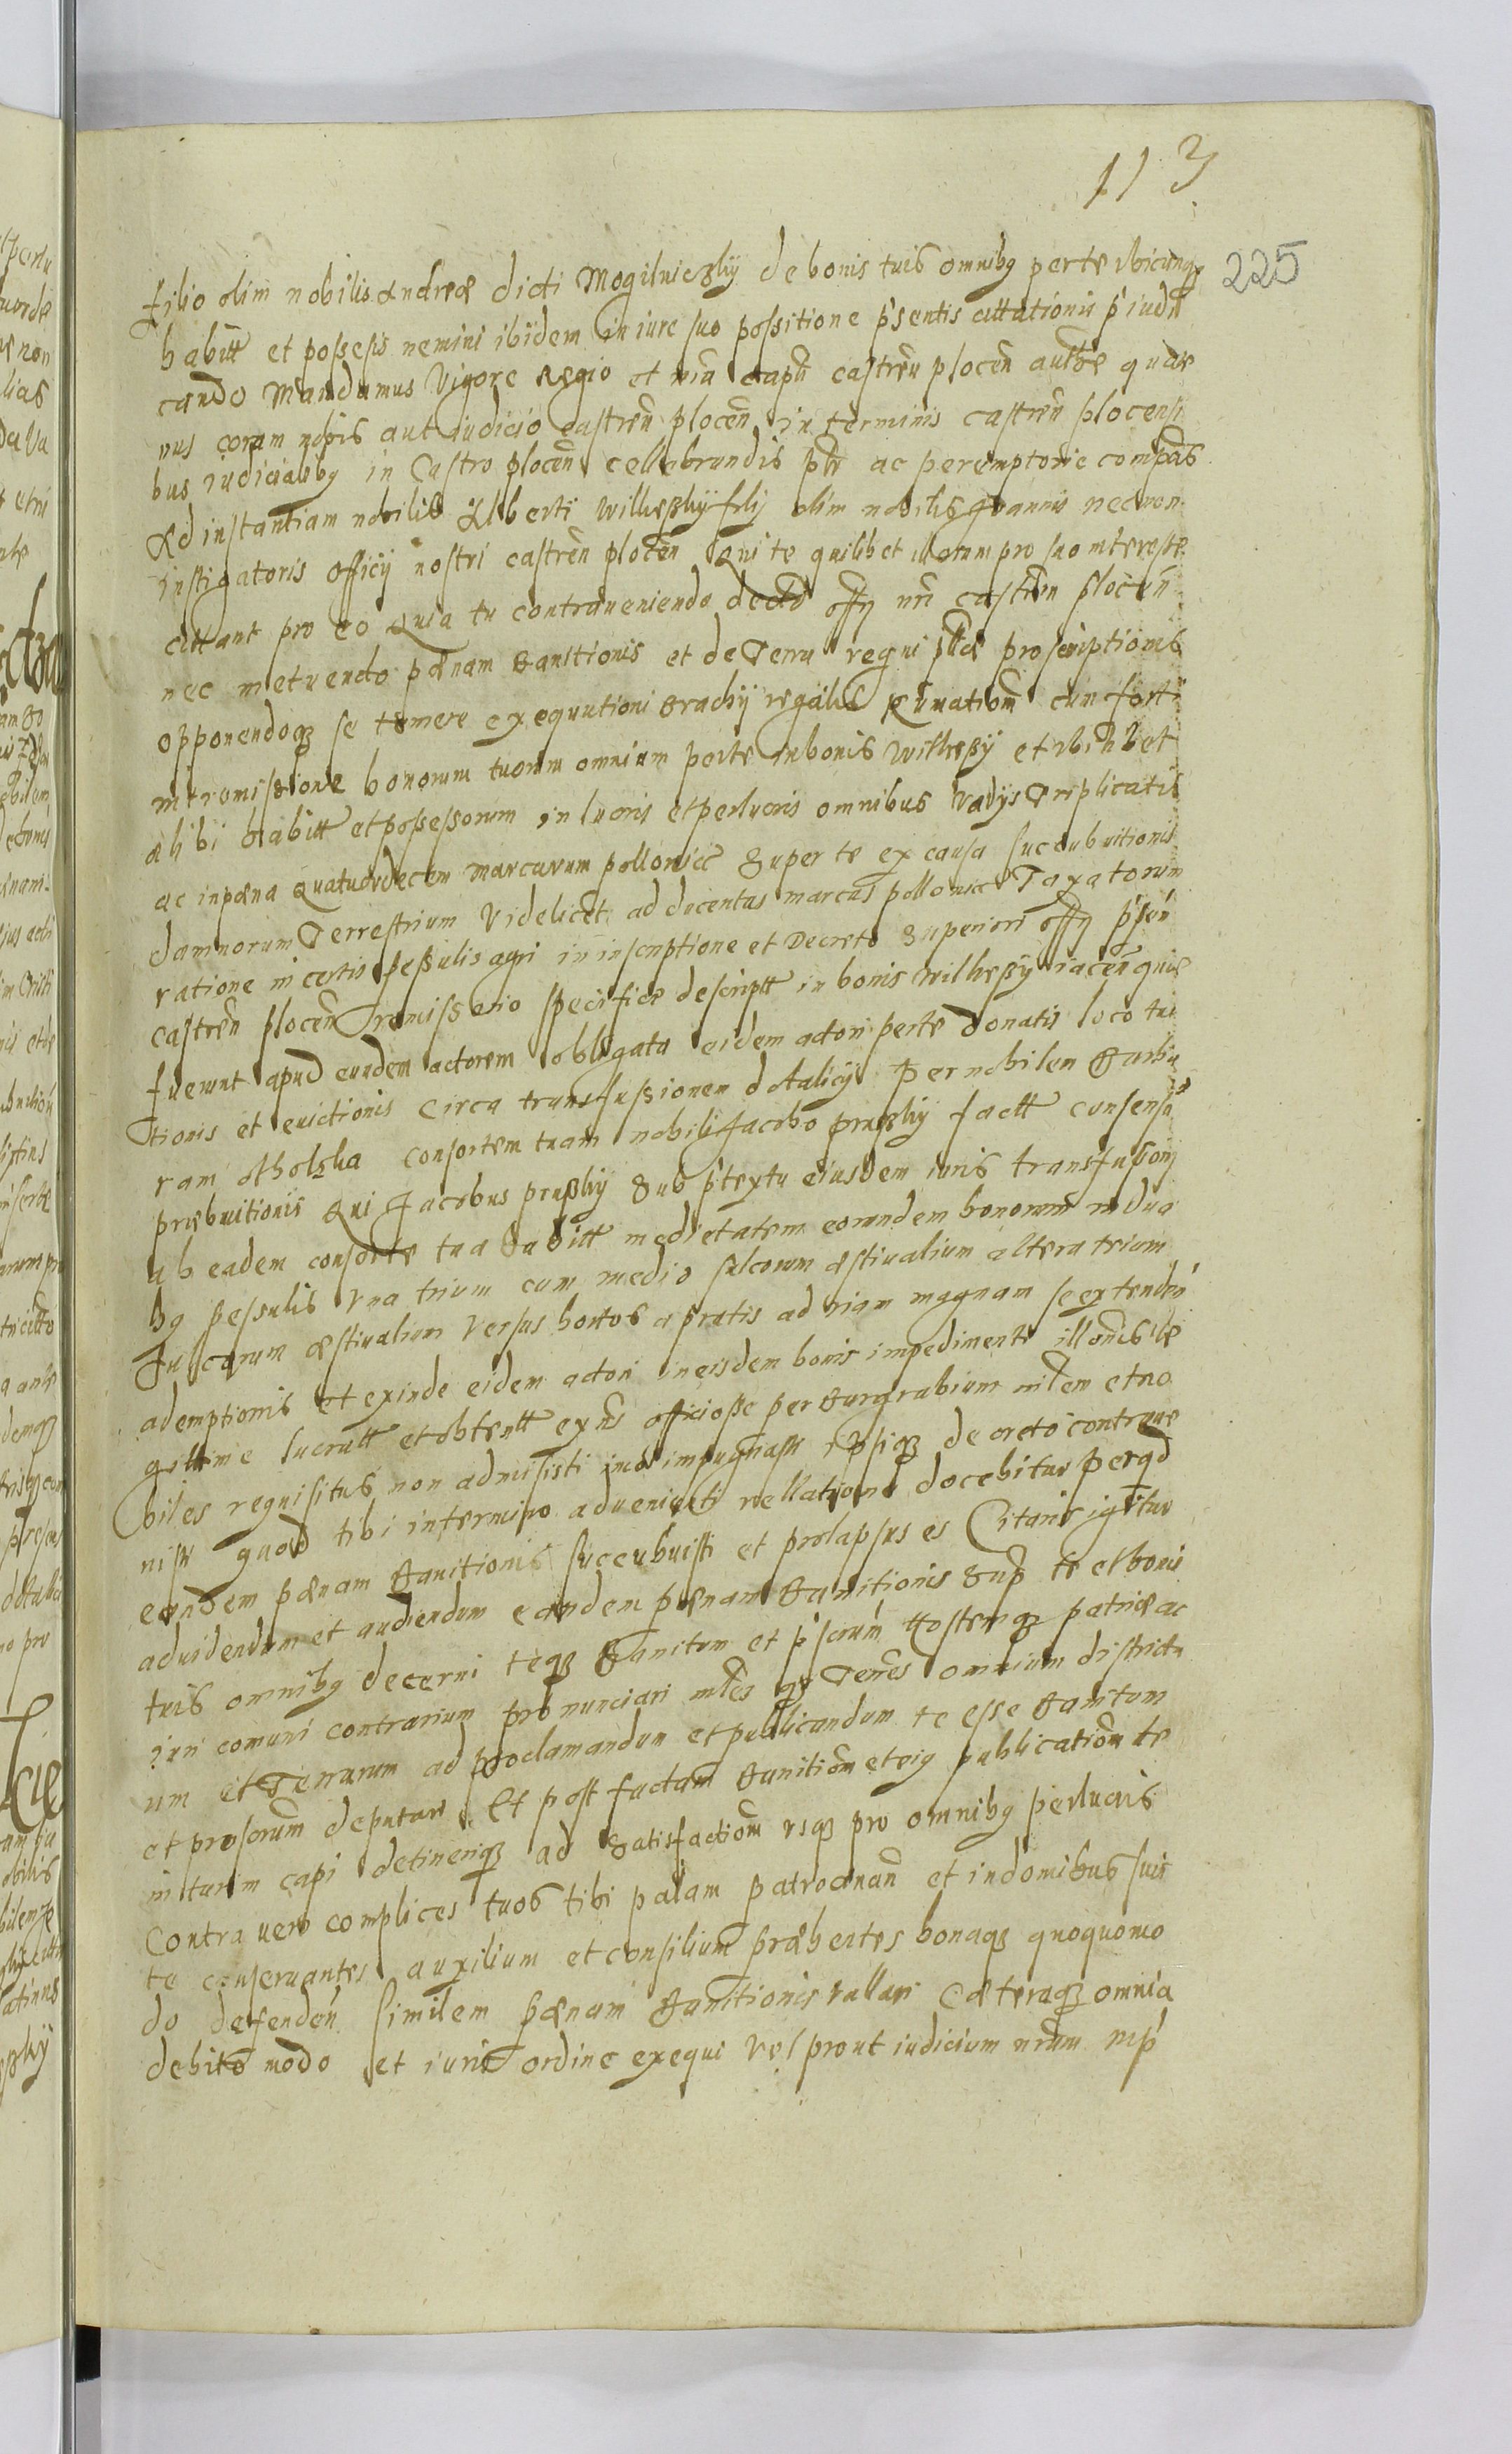 113
225
filio olim nobilis Andreæ dicti Mogilniczky de bonis tuis omnibq per te vbicunq
habitt et possesis nemini ibidem in iure suo possitione pśentis cittationis pŕiudi
cando Mandamus Vigore Regio et nrã capti castreñ plocen authe quate
nus coram nobis aut iudicio castreñ ploceñ in terminis castreñ plocensi
bus iudicialibq in Castro ploceñ cellebrandis ptr ac peremptorie compãs
Ad instantiam nobilis Alberti Wilkęsky filij olim nobilis Joannis necnon
instigatoris officij nostri castreñ ploceñ Qui te quilibet illorum pro suo interesse
cittant pro eo Quia tu contraueniendo decto offij nri castreñ ploceñ
nec metuendo pœnam Banitionis et de Terra regni ptæ proscriptionis
opponendoq se temere exequutioni Brachij regalis Euuatioñ cum forti
intromissione bonorum tuorum omnium per te in bonis Wilkęsy et vbilibet
alibi habitt et possessorum in lucris et perlucris omnibus Vadys Triplicatis
ac in pœna Quatuordecem marcarum pollonice Super te ex causa succubuitionis
damnorum Terrestrium Videlicet ad ducentas marcas pollonice Taxatorum
ratione in certis pessulis agri in inscriptione et Decreto superiori offij pśen
castreñ ploceñ remissorio specifice descriptt in bonis Wilkęsy iaceñ quæ
fuerunt apud eundem actorem obligata eidem actori per te donatis loco tui
tionis et euictionis Circa transfusionem dotalicij Per nobilem Barba
ram otholska consortem tuam nobili Jacobo prusky factt consensus
præbuitionis Qui Jacobus prusky Sub pŕtextu eiusdem iuris transfusioñ
ab eadem consorte tua habitt medietatem eorundem bonorum in dua
bq pessulis vna trium cum medio sulcorum æstiualium altera trium
sulcorum æstiualium Versus hortos a pratis ad viam magnam se extendeñ
ademptionis et exinde eidem actori in eisdem bonis impedimenti illoñis le
gittime lucratt et obtentt ex nris officiosse per Burgrabium mltem et no
biles requisitus non admisisti imo impugnasti ipsiq decreto contraue
nisti quod tibi in termino aduenienti rellatione docebitur Per qd
eandem pœnam Banitionis succubuisti et prolapsus es Citaris igitur
ad uidendum et audiendum eandem pœnam Banitionis sup te et bonis
tuis omnibq decerni teq Banitum et pŕscrum Hostemq patriæ ac
iuri comuni contrarium pronunciari mltes qr Terres omnium districtu
um et Terrarum ad proclamandum et publicandum te esse Banitum
et proscrum deputari Et post factam Banitioñ eteiq publicatioñ te
in turim capi detineriq ad Satisfactioñ vsq pro omnibq perlucris
Contra vero complices tuos tibi palam patrocinañ et in domibus suis
te conseruantes auxilium et consilium præbentes bonaq quoquomo
do defendeñ similem pœnam Banitionis vallari Cæteraq omnia
debito modo et iuris ordine exequi vel prout iudicium nrum inp